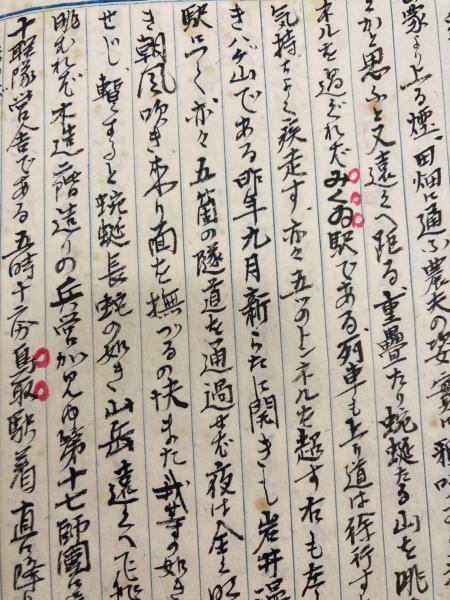 家より上る煙、田畑に通ふ農夫の姿、實に雅味
とかく思ふと又遠くへ距る、重疊たり蜿蜒たる山を眺
ネルを過ぐればみくゐ駅である、列車も上り道は徐行す
気持ちよく疾走す、亦々五つのトンネルを越す右も左も
きハゲ山である昨年九月新らたに開きし岩井温
駅につく亦々五箇の隧道を通過せば夜は全く明
き朝風吹き来り面を撫づるの快また我等の如き
せじ、暫すると蜿蜒長蛇の如き山岳遠くへ飛
眺むれば木造二階造りの兵営が見ゆ第十七師團
十聯隊営舎である五時十分鳥取駅着直に降り